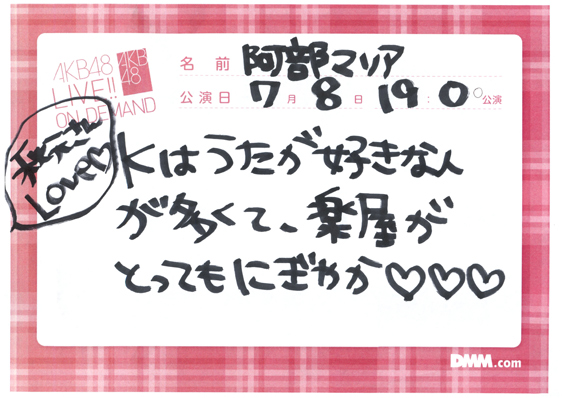 AKB48
LIVE!!
ON DEMAND
AKB
48
名前 阿部マリア
公演日 7月8日 19:00公演
秋元さん
Love♡
Kはうたが好きな人
が多くて、楽屋が
とってもにぎやか♡♡♡
DMM.com